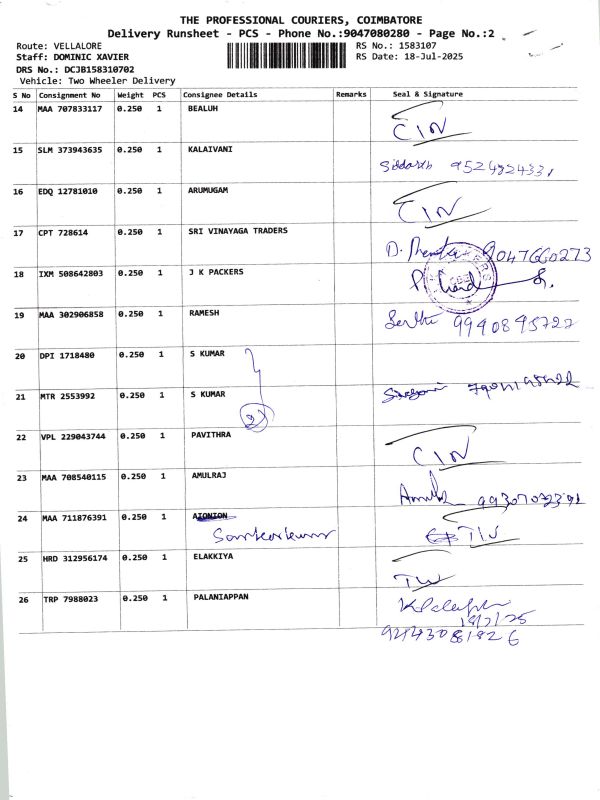 THE PROFESSIONAL COURIERS, COIMBATORE
Delivery Runsheet - PCS - Phone No.:9047080280 - Page No.:2
Route: VELLALORE RS No.: 1583107
Staff: DOMINIC XAVIER RS Date: 18-Jul-2025
DRS No.: DCJB158310702
Vehicle: Two Wheeler Delivery
S No Consignment No Weight PCS Consignee Details Remarks Seal & Signature
14 MAA 707833117 0.250 1 BEALUH
CIN
15 SLM 373943635 0.250 1 KALAIVANI
Siddarth
16 EDQ 12781010 0.250 1 ARUMUGAM
CIN
17 CPT 728614 0.250 1 SRI VINAYAGA TRADERS
9047660273
18 IXM 508642803 0.250 1 J K PACKERS
19 MAA 302906858 0.250 1 RAMESH
9940895722
20 DPI 1718480 0.250 1 S KUMAR
21 MTR 2553992 0.250 1 S KUMAR
2
22 VPL 229043744 0.250 1 PAVITHRA
CIN
23 MAA 708540115 0.250 1 AMULRAJ
24 MAA 711876391 0.250 1
25 HRD 312956174 0.250 1 ELAKKIYA
26 TRP 7988023 0.250 1 PALANIAPPAN
18/7/25